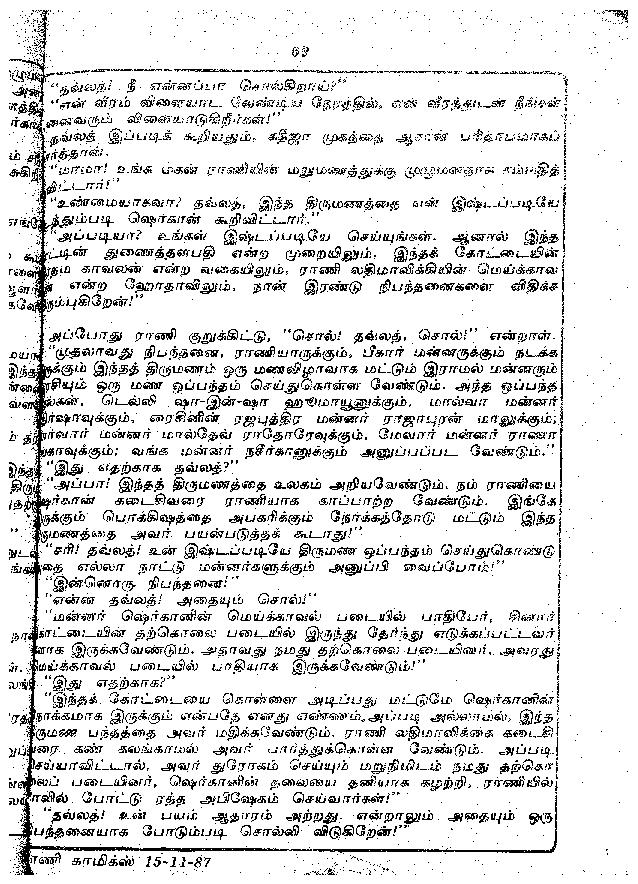 63
"தவ்லத்! நீ என்னப்பா சொல்கிறாய்?"
"என் வீரம் விளையாட வேண்டிய நேரத்தில், என் வீரத்துடன் நீங்கள்
னைவரும் விளையாடுகிறீர்கள்!"
தவ்லத் இப்படிக் கூறியதும், கதிஜா முகத்தை ஆசான் பரிதாபமாகப்
ர்த்தான்.
"மாமா! உங்க மகன் ராணியின் மறுமணத்துக்கு முழுமனதாக சம்மதித்
விட்டார்!"
"உண்மையாகவா? தவ்லத், இந்த திருமணத்தை என் இஷ்டப்படியே
த்தும்படி ஷெர்கான் கூறிவிட்டார்."
அப்படியா? உங்கள் இஷ்டப்படியே செய்யுங்கள். ஆனால் இந்த
ட்டின் துணைத்தளபதி என்ற முறையிலும், இந்தக் கோட்டையின்
தம காவலன் என்ற வகையிலும், ராணி லதிமாவிக்கியின் மெய்க்காவ
ன் என்ற ஹோதாவிலும், நான் இரண்டு நிபந்தனைகளை விதிக்க
ரும்புகிறேன்!"
அப்போது ராணி குறுக்கிட்டு, "சொல்! தவ்லத், சொல்!" என்றாள்.
"முதலாவது நிபந்தனை, ராணியாருக்கும், பீகார் மன்னருக்கும் நடக்க
ருக்கும் இந்தத் திருமணம் ஒரு மணவிழாவாக மட்டும் இராமல் மன்னரும்
ரசியும் ஒரு மண ஒப்பந்தம் செய்துகொள்ள வேண்டும். அந்த ஒப்பந்த
ல்கள், டெல்லி ஷா-இன்-ஷா ஹூமாயூனுக்கும், மால்வா மன்னர்
ர்ஷாவுக்கும், ரைசினின் ரஜபுத்திர மன்னர் ராஜாபுரன் மாலுக்கும்;
ர்வார் மன்னர் மால்தேவ் ராதோரேவுக்கும், மேவார் மன்னர் ராணா
காவுக்கும்; வங்க மன்னர் நசீர்கானுக்கும் அனுப்பப்பட வேண்டும்."
"இது எதற்காக தவ்லத்?"
"அப்பா! இந்தத் திருமணத்தை உலகம் அறியவேண்டும். நம் ராணியை
ஷர்கான் கடைசிவரை ராணியாக காப்பாற்ற வேண்டும். இங்கே
ருக்கும் பொக்கிஷத்தை அபகரிக்கும் நோக்கத்தோடு மட்டும் இந்த
ருமணத்தை அவர் பயன்படுத்தக் கூடாது!"
"சரி! தவ்லத்! உன் இஷ்டப்படியே திருமண ஒப்பந்தம் செய்துகொண்டு
தை எல்லா நாட்டு மன்னர்களுக்கும் அனுப்பி வைப்போம்!"
"இன்னொரு நிபந்தனை!"
"என்ன தவ்லத்! அதையும் சொல்!"
"மன்னர் ஷெர்கானின் மெய்க்காவல் படையில் பாதிபேர், சினார்
காட்டையின் தற்கொலை படையில் இருந்து தேர்ந்து எடுக்கப்பட்டவர்
ளாக இருக்கவேண்டும். அதாவது நமது தற்கொலை படையினர், அவரது
மெய்க்காவல் படையில் பாதியாக இருக்கவேண்டும்!"
"இது எதற்காக?"
"இந்தக் கோட்டையை கொள்ளை அடிப்பது மட்டுமே ஷெர்கானின்
நாக்கமாக இருக்கும் என்பதே எனது எண்ணம், அப்படி அல்லாமல், இந்த
ருமண பந்தத்தை அவர் மதிக்கவேண்டும். ராணி லதிமாவிக்கை கடைசி
வரை. கண் கலங்காமல் அவர் பார்த்துக்கொள்ள வேண்டும். அப்படி
செய்யாவிட்டால், அவர் துரோகம் செய்யும் மறுநிமிடம் நமது தற்கொ
லைப் படையினர், ஷெர்கானின் தலையை தனியாக கழற்றி, ராணியில்
ாலில் போட்டு ரத்த அபிஷேகம் செய்வார்கள்!"
"தவ்லத்! உன் பயம் ஆதாரம் அற்றது. என்றாலும் அதையும் ஒரு
பந்தனையாக போடும்படி சொல்லி விடுகிறேன்!"
ாணி காமிக்ஸ் 15-11-87